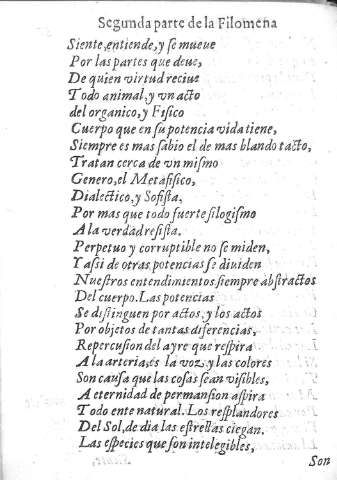 Segunda parte de la Filomena
Siente, entiende, y ſe mueue
Por las partes que deue,
De quien virtud reciue
Todo animal, y vn acto
del organico, y Fiſico
Cuerpo que en ſu potencia vida tiene,
Siempre es mas ſabio el de mas blando tacto,
Tratan cerca de vn miſmo
Genero, el Metafiſico,
Dialectico, y Sofiſta,
Por mas que todo fuerte ſilogiſmo
A la verdad reſiſta.
Perpetuo y corruptible no ſe miden,
Y aſsi de otras potencias ſe diuiden
Nueſtros entendimientos ſiempre abſtractos
Del cuerpo. Las potencias
Se diſtinguen por actos, y los actos
Por objetos de tantas diferencias,
Repercuſion del ayre que reſpira
A la arteria, es la voz, y las colores
Son cauſa que las coſas ſean viſibles,
A eternidad de permanſion aſpira
Todo ente natural. Los reſplandores
Del Sol, de dia las eſtrellas ciegan.
Las eſpecies que ſon intelegibles,
Son